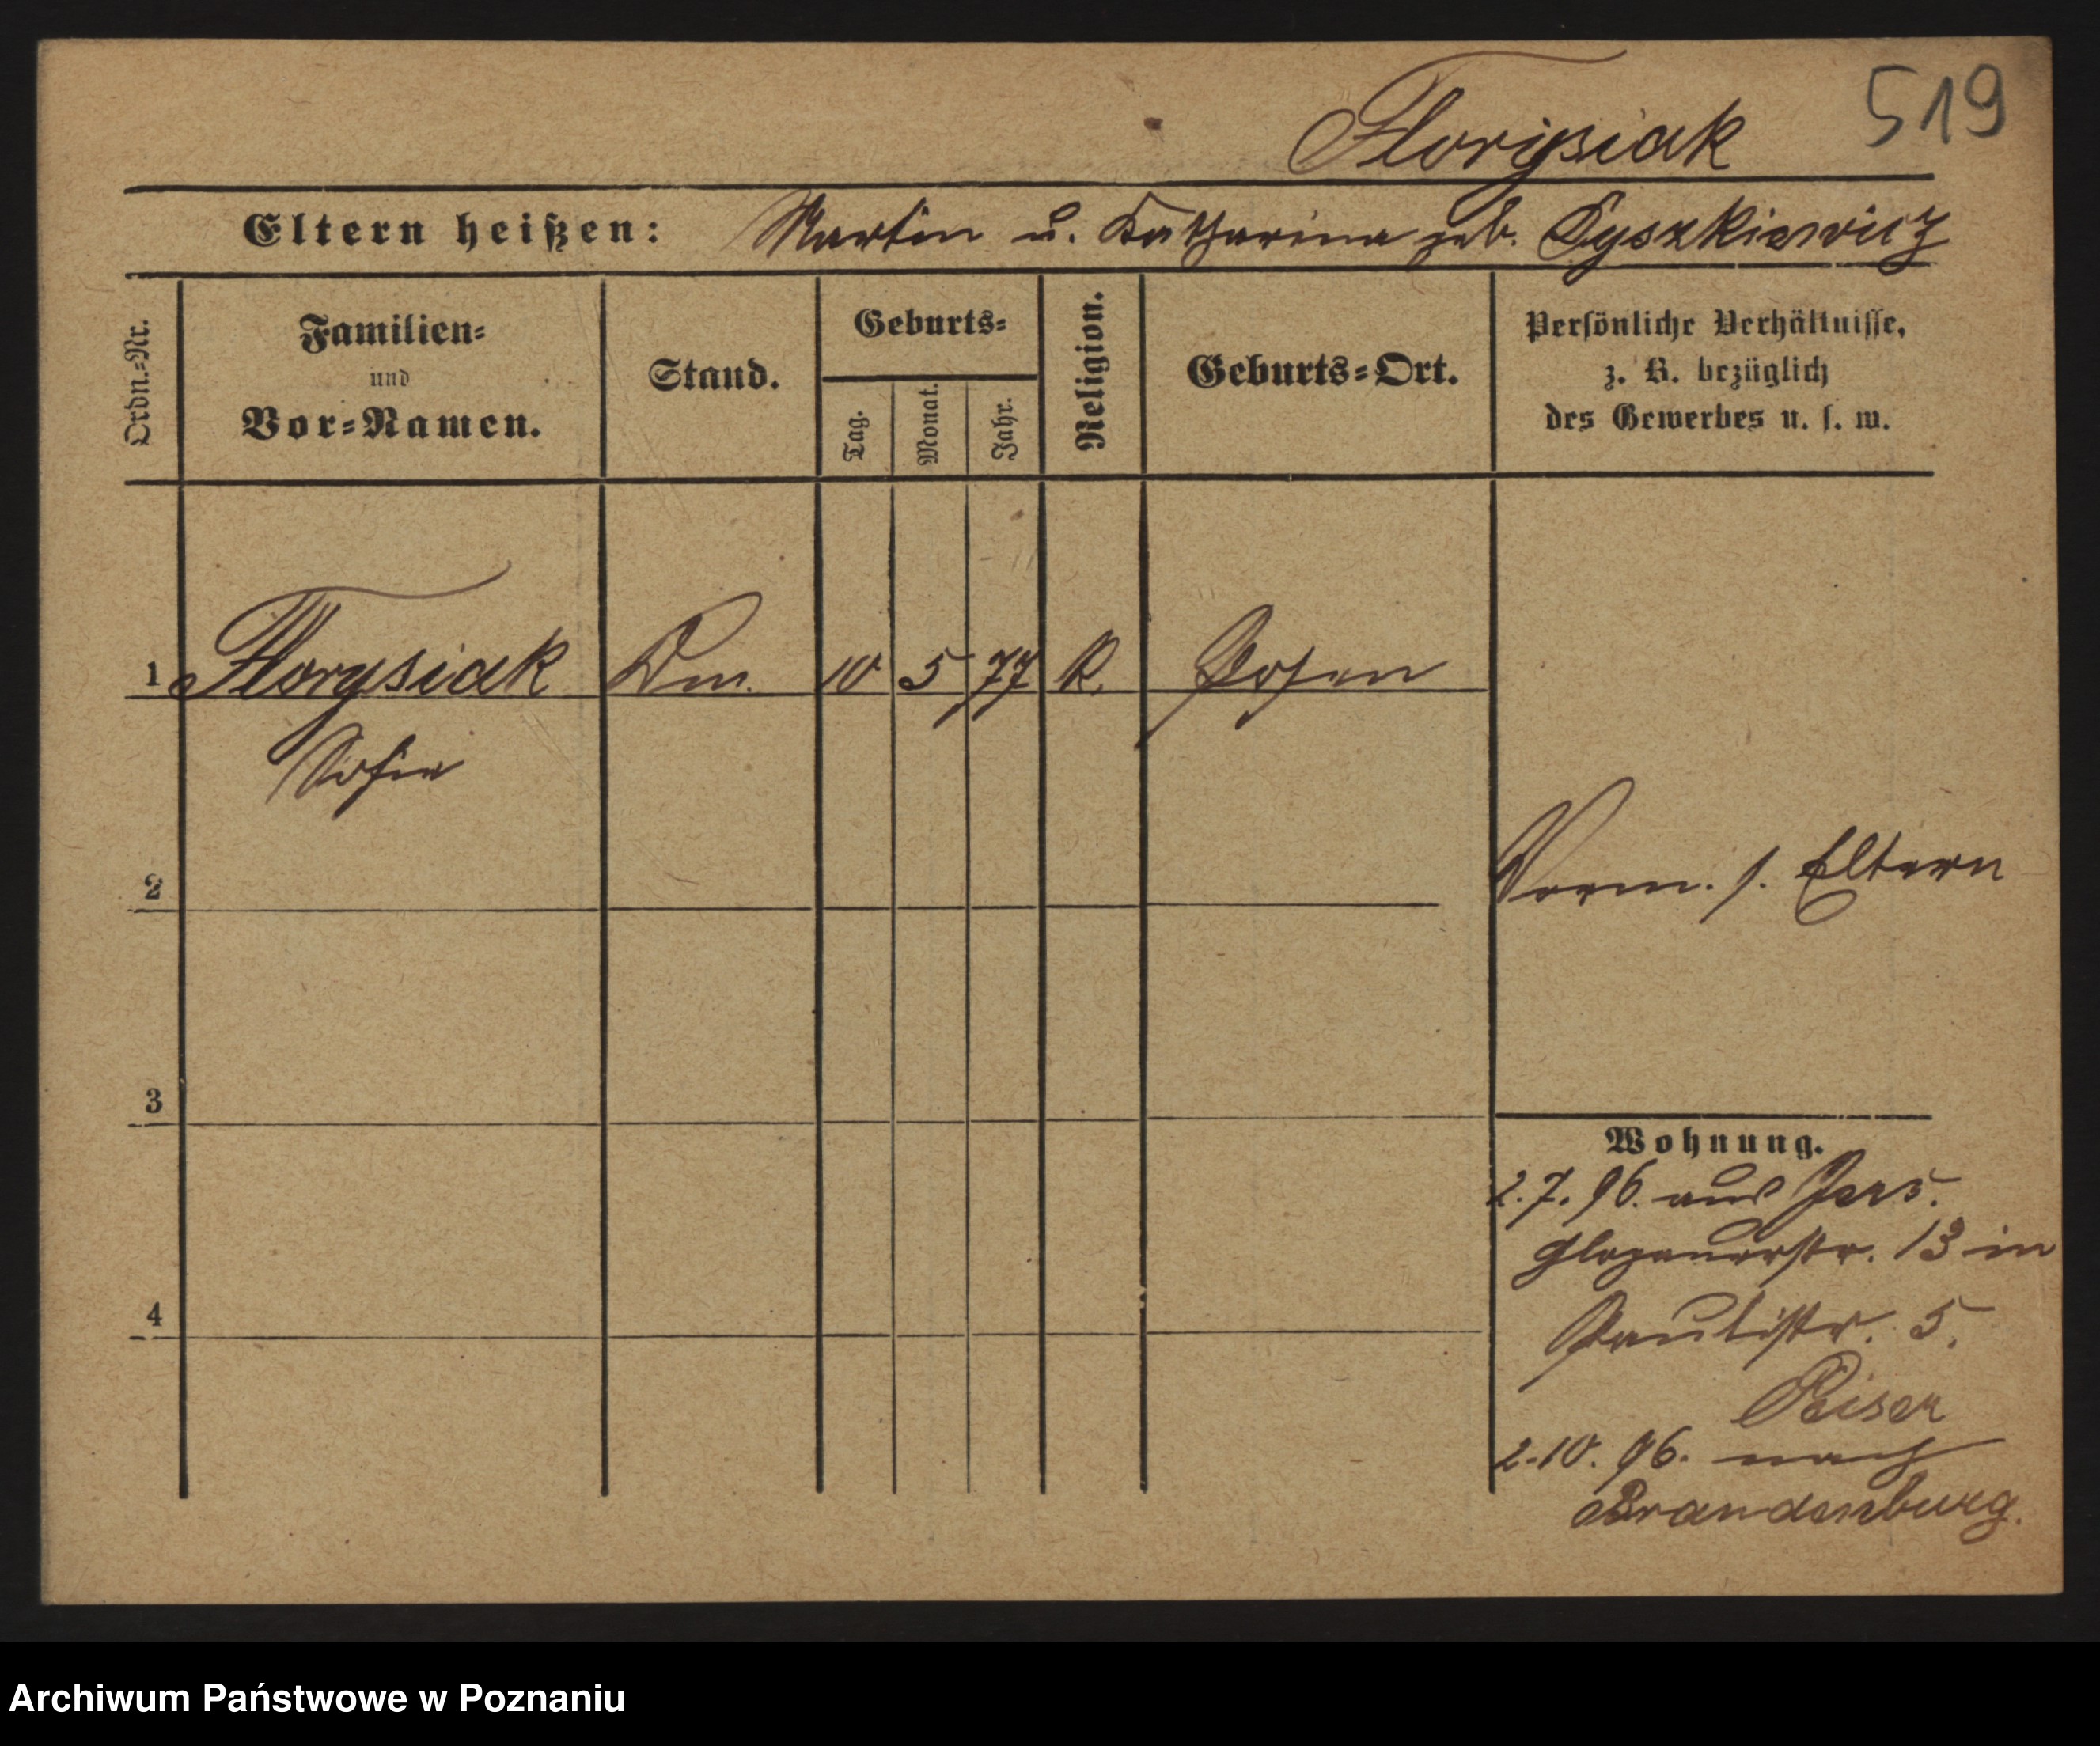 519
Florysiak
Eltern heißen: Martin u. Katharina geb. Dyszkiewicz
Ordn.=Nr.
Familien=
und
Vor=Namen.
Stand.
Geburts=
Tag.
Monat.
Jahr.
Religion.
Geburts=Ort.
Persönliche Verhältnisse,
z. B. bezüglich
des Gewerbes u. s. w.
1 Florysiak 10 5 77 K. Posen
Sofie
2
Vorm. s. Eltern
3
Wohnung.
2.7.96. aus Jers.
Glogauerstr. 13 in
4
Paulistr. 5.
2.10.96. nach
Brandenburg.
Archiwum Państwowe w Poznaniu